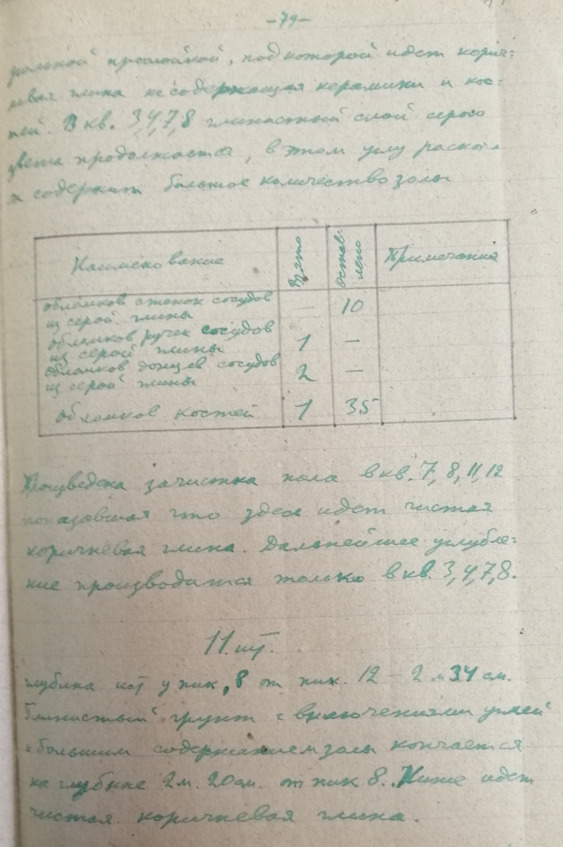 -79-
рольной прослойкой, под которой идет корич=
невая глина не содержащая керамики и кос=
тей. В кв. 3,4,7,8 глинастый слой серого
цвета продолжается, в этом углу раскопа
и содержит большое количество золы
Наименование Взято Остав-лено Примечание
обломков стенок сосудов
из серой глины — 10
обломков ручек сосудов
из серой глины 1 —
обломков донцев сосудов
из серой глины 2 —
обломков костей 1 35
Произведена зачистка пола в кв. 7, 8, 11, 12
показавшая что здесь идет чистая
коричневая глина. Дальнейшее углубле=
ние производится только в кв. 3,4,7,8.
11 шт.
глубина шт у пик. 8 от пик. 12 - 2 м 34 см.
Глинистый грунт с включениями углей
и большим содержанием золы кончается
на глубине 2 м. 20 см. от пик 8. Ниже идет
чистая коричневая глина.